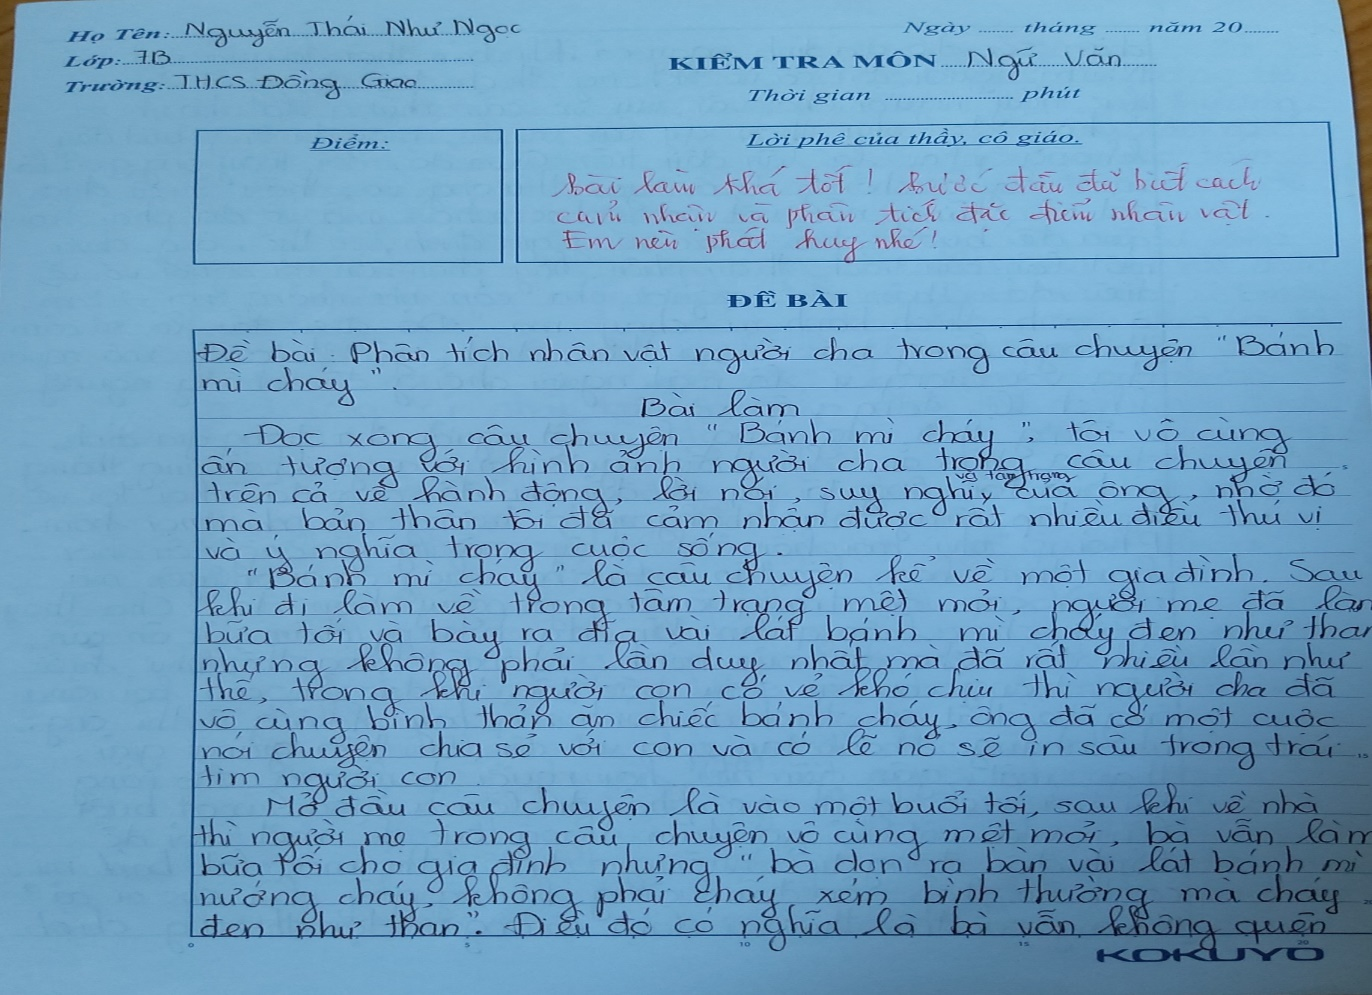 Họ Tên: Nguyễn Thái Như Ngọc
Ngày ........ tháng ........ năm 20........
Lớp: 7B
KIỂM TRA MÔN Ngữ Văn
Trường: THCS Đồng Giao
Thời gian ........ phút
Điểm:
Lời phê của thầy, cô giáo.
Bài làm khá tốt! Bước đầu đã biết cách
cảm nhận và phân tích đặc điểm nhân vật.
Em nên phát huy nhé!
ĐỀ BÀI
Đề bài: Phân tích nhân vật người cha trong câu chuyện "Bánh
mì cháy".
Bài làm
Đọc xong câu chuyện "Bánh mì cháy", tôi vô cùng
ấn tượng với hình ảnh người cha trong câu chuyện
trên cả về hành động, lời nói, suy nghĩ và tâm trạng của ông, nhờ đó
mà bản thân tôi đã cảm nhận được rất nhiều điều thú vị
và ý nghĩa trong cuộc sống.
"Bánh mì cháy" là câu chuyện kể về một gia đình. Sau
khi đi làm về trong tâm trạng mệt mỏi, người mẹ đã làm
bữa tối và bày ra đĩa vài lát bánh mì cháy đen như than
nhưng không phải lần duy nhất mà đã rất nhiều lần như
thế, trong khi người con có vẻ khó chịu thì người cha đã
vô cùng bình thản ăn chiếc bánh cháy, ông đã có một cuộc
nói chuyện chia sẻ với con và có lẽ nó sẽ in sâu trong trái
tim người con
Mở đầu câu chuyện là vào một buổi tối, sau khi về nhà
thì người mẹ trong câu chuyện vô cùng mệt mỏi, bà vẫn làm
bữa tối cho gia đình nhưng "bà dọn ra bàn vài lát bánh mì
nướng cháy, không phải cháy xém bình thường mà cháy
đen như than". Điều đó có nghĩa là bà vẫn không quên
KOKUYO